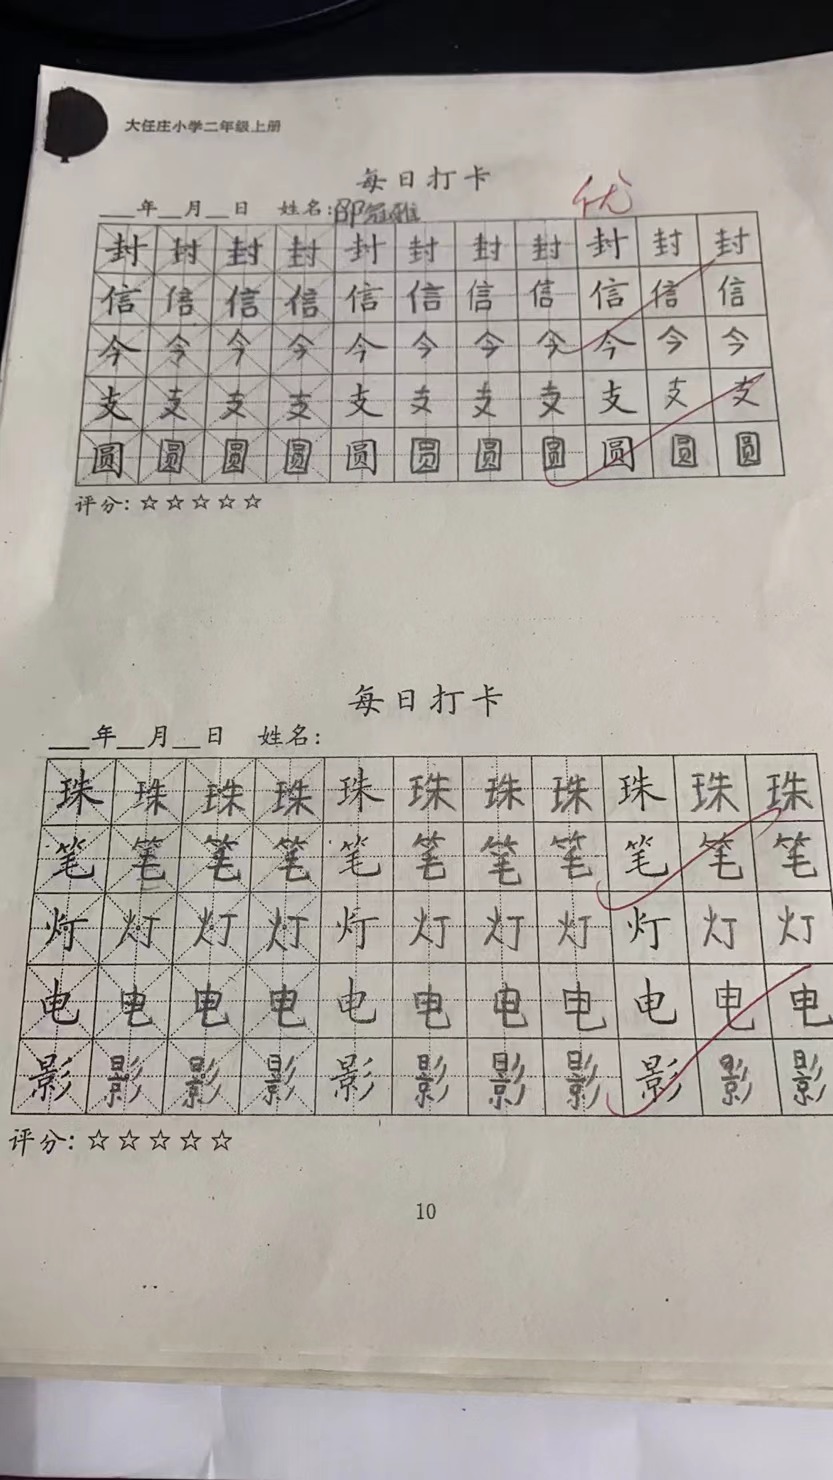 大任庄小学二年级上册
每日打卡
优
___年__月__日 姓名:邵冠雅
封封封封封封封封封封封
信信信信信信信信信信信
今今今今今今今今今今今
支支支支支支支支支支支
圆圆圆圆圆圆圆圆圆圆圆
评分:☆☆☆☆☆
每日打卡
___年__月__日 姓名:
珠珠珠珠珠珠珠珠珠珠珠
笔笔笔笔笔笔笔笔笔笔笔
灯灯灯灯灯灯灯灯灯灯灯
电电电电电电电电电电电
影影影影影影影影影影影
评分:☆☆☆☆☆
10